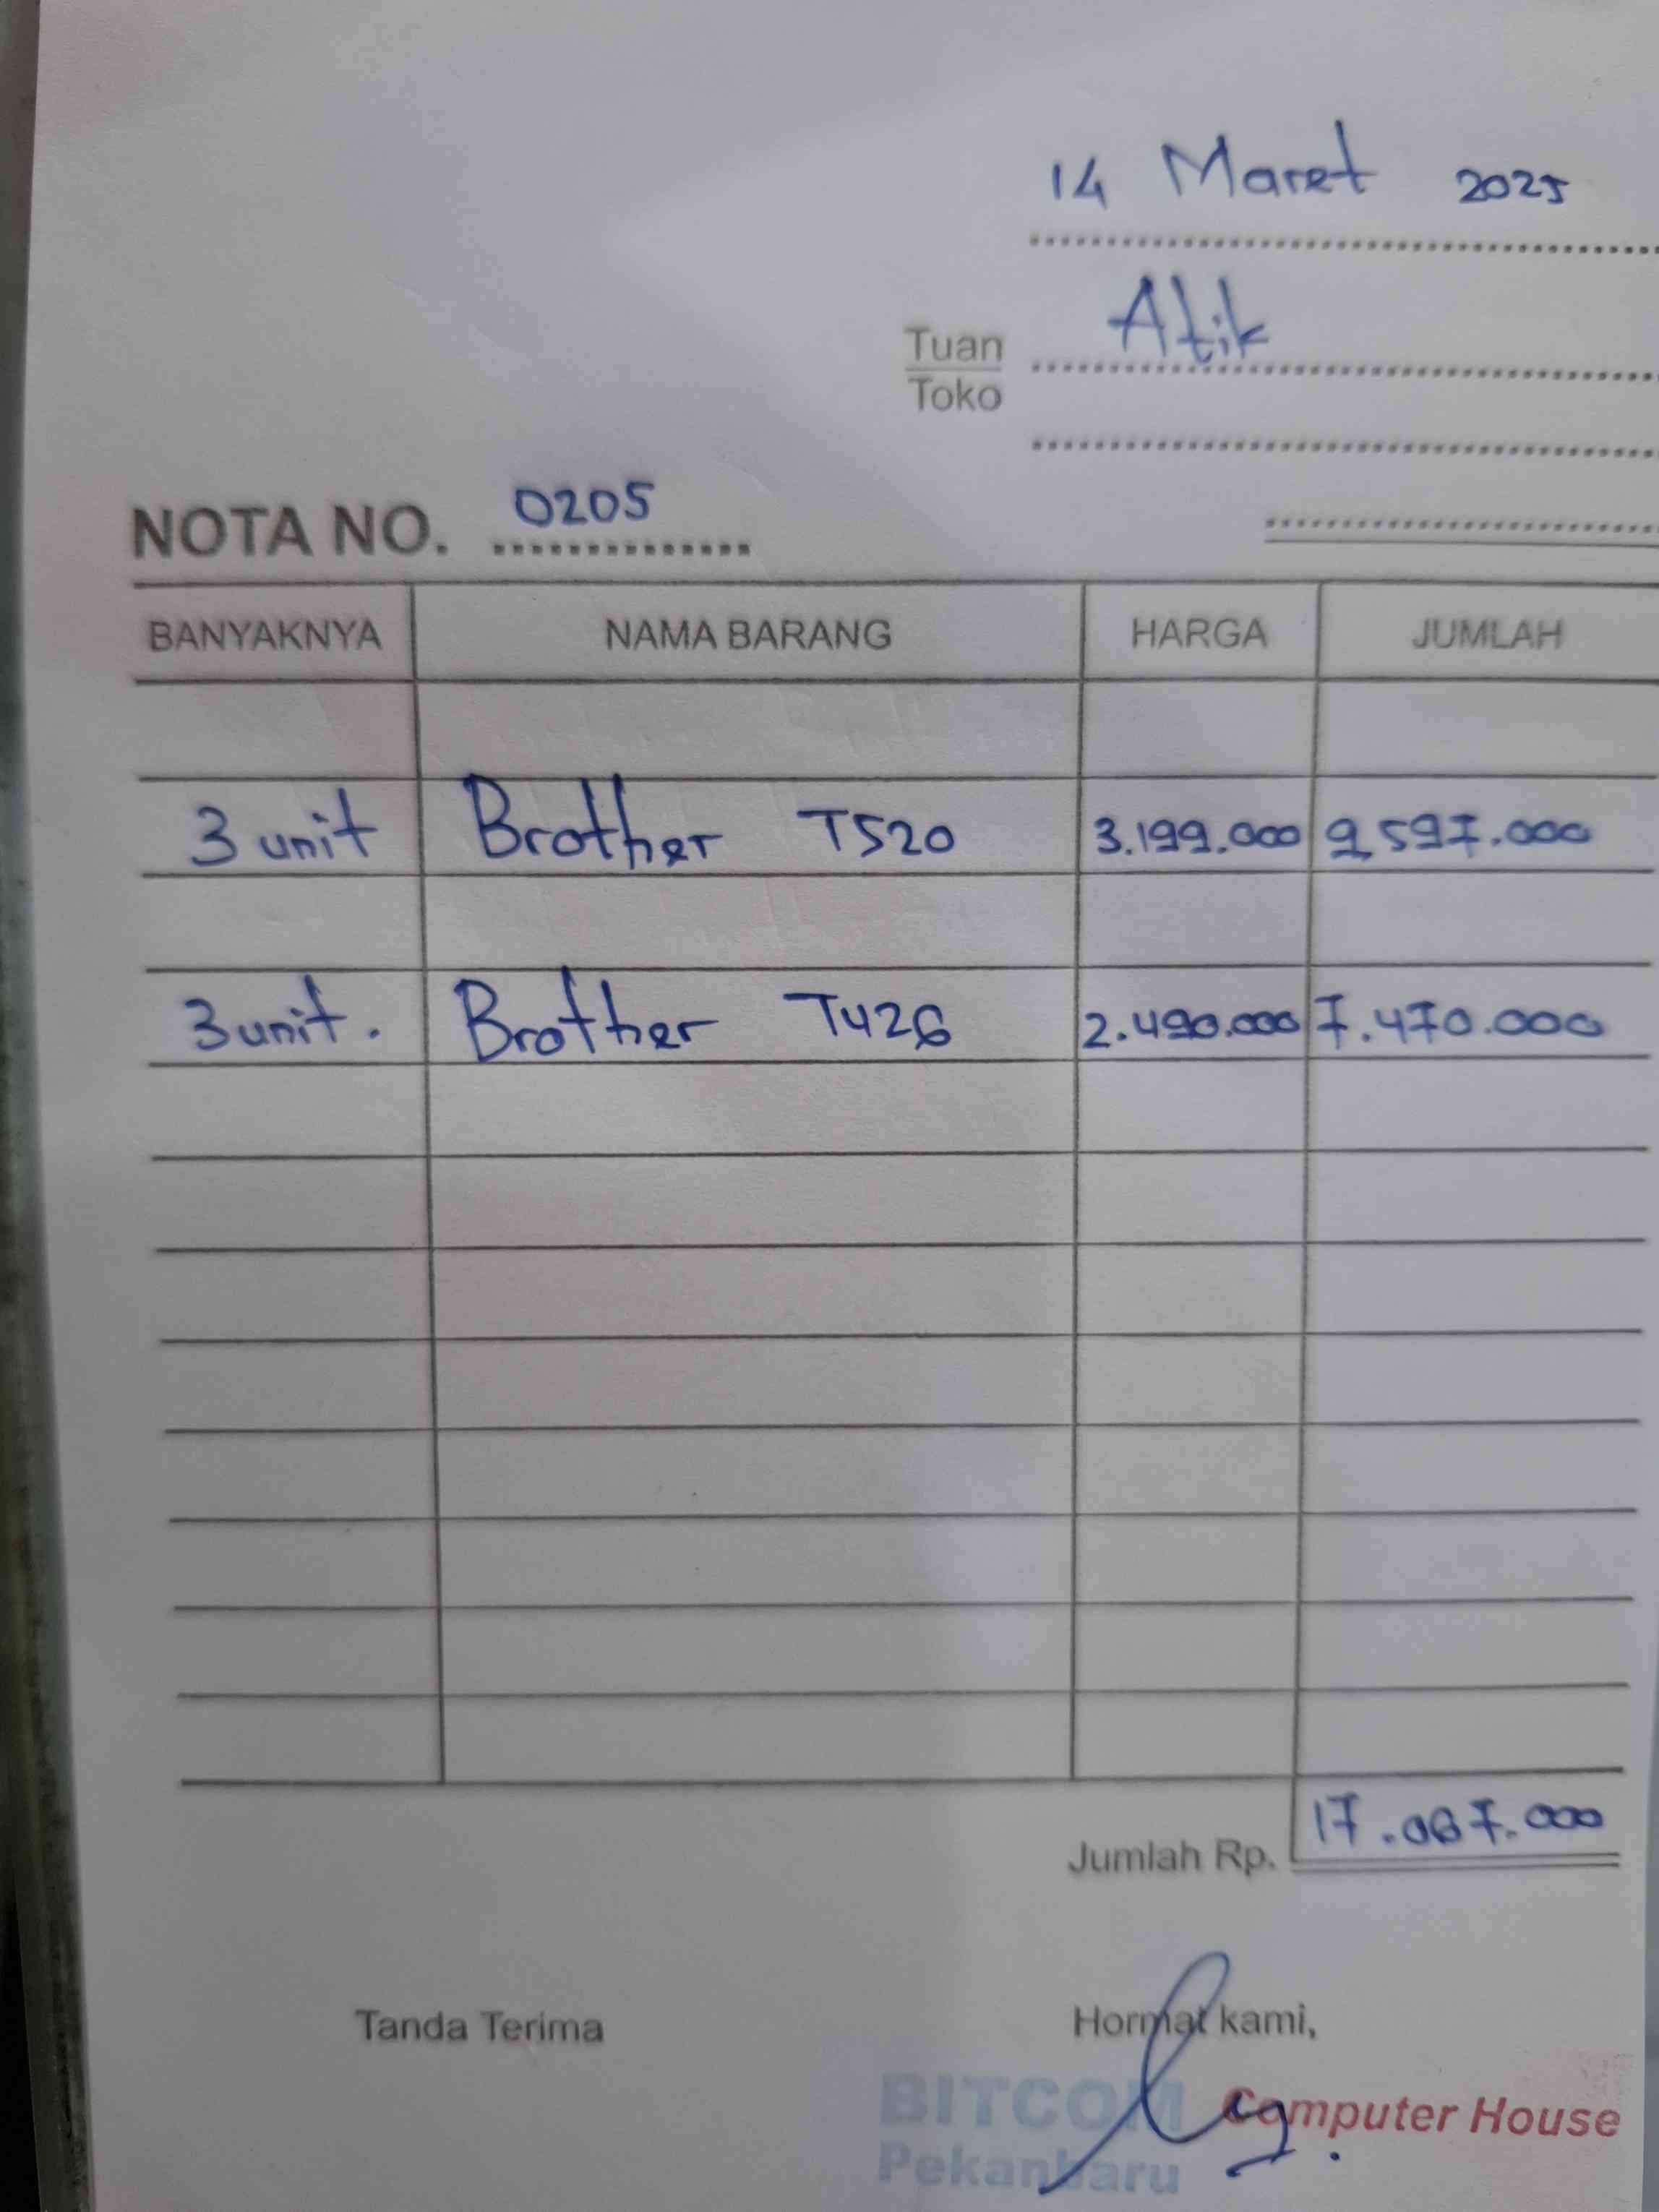 14 Maret 2025
Tuan Atik
Toko
NOTA NO. 0205
BANYAKNYA NAMA BARANG HARGA JUMLAH
3 unit Brother T520 3.199.000 9.597.000
3 unit. Brother T426 2.490.000 7.470.000
Jumlah Rp. 17.067.000
Tanda Terima Hormat kami,
BITCOM Computer House
Pekanbaru